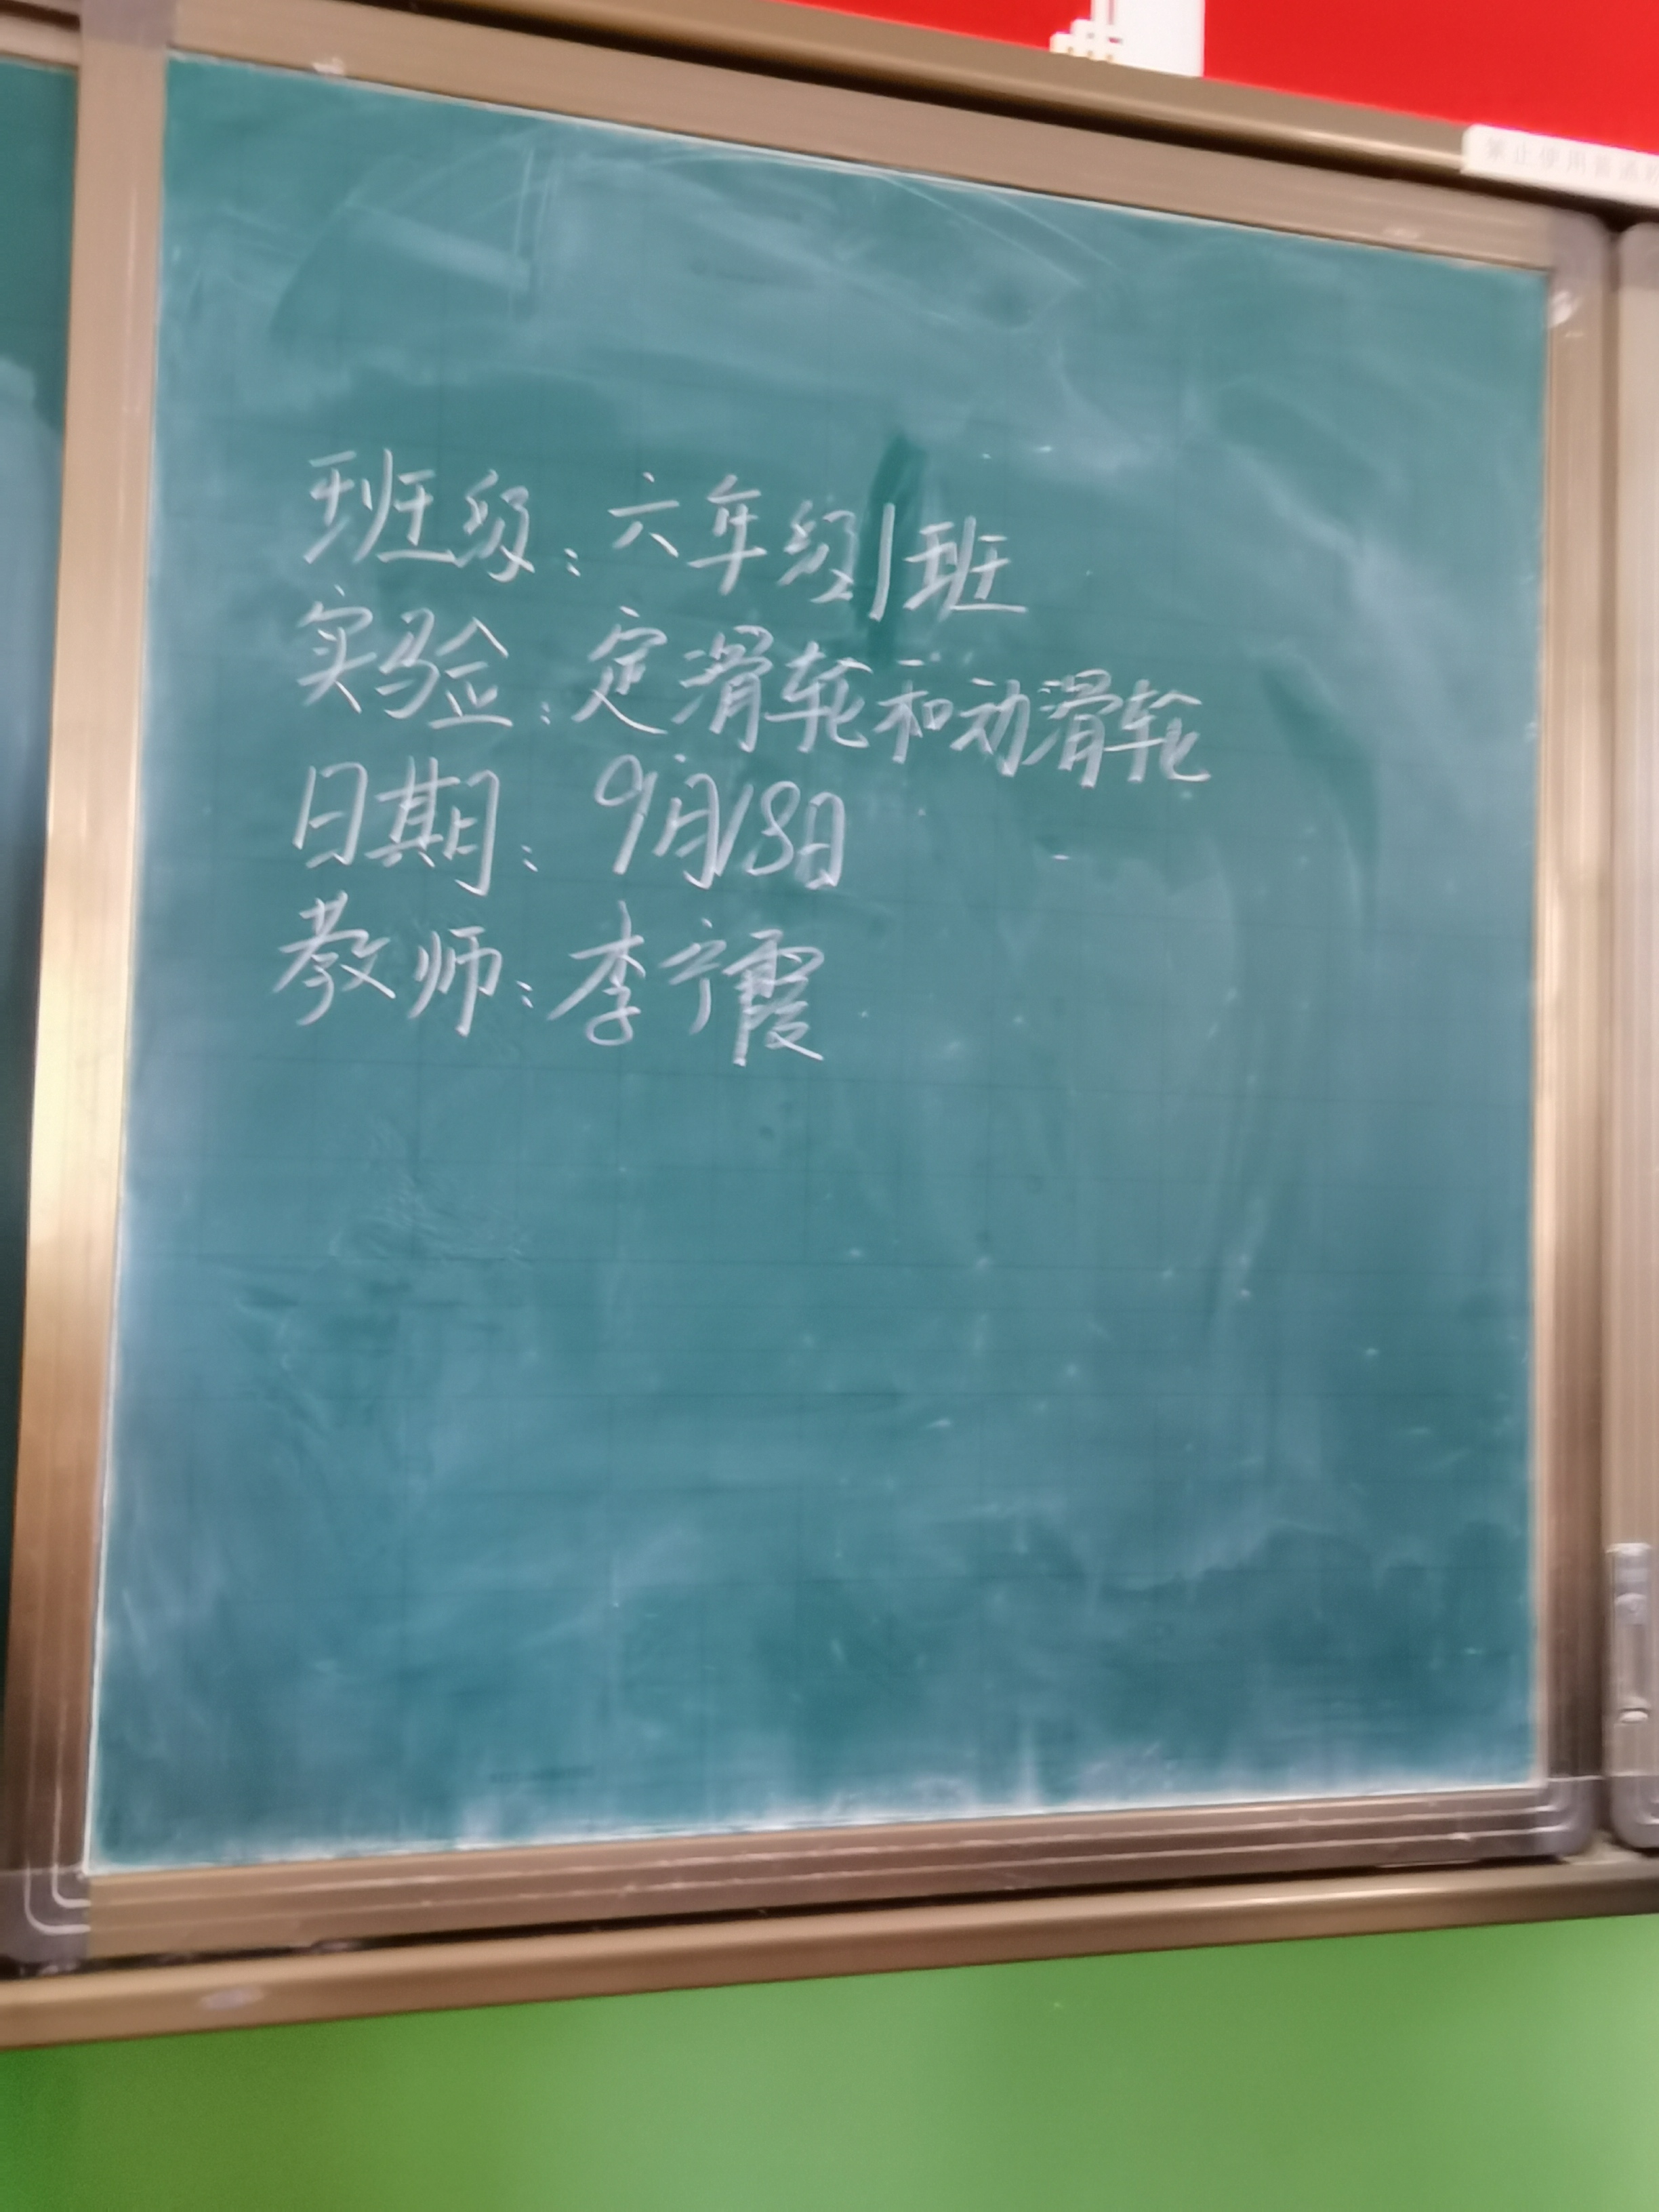 禁止使用普通粉
班级：六年级1班
实验：定滑轮和动滑轮
日期：9月18日
教师：李宁霞